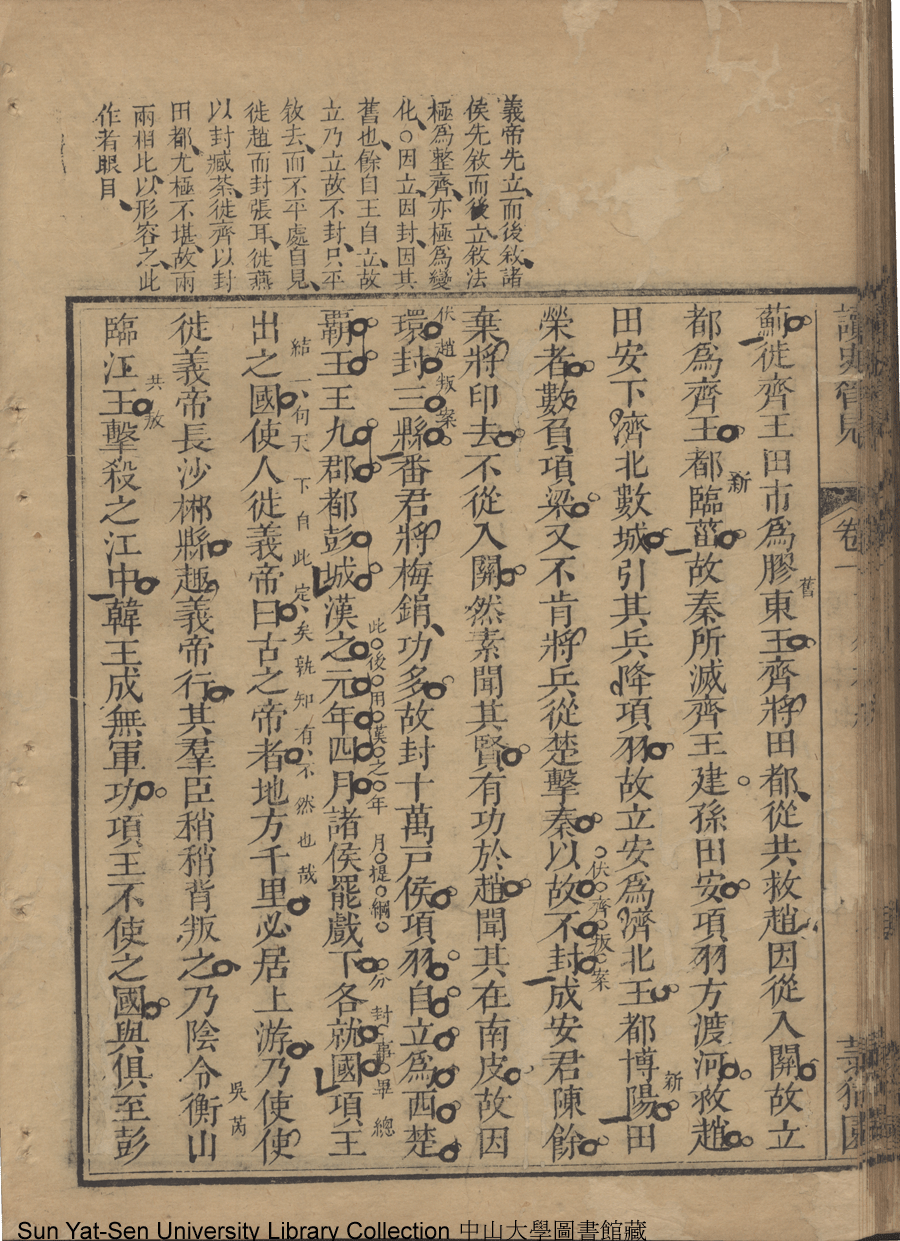 義帝先立而後敘諸
侯先敘而後立敘法
極爲整齊亦極爲變
化○因立因封因其
舊也餘自王自立故
立乃立故不封只平
敘去而不平處自見
徙趙而封張耳徙燕
以封臧荼徙齊以封
田都尤極不堪故兩
兩相比以形容之此
作者眼目
卷一
薊徙齊王田市爲膠東王齊將田都從共救趙因從入關故立
舊
都爲齊王都臨菑故秦所滅齊王建孫田安項羽方渡河救趙
新
田安下濟北數城引其兵降項羽故立安爲濟北王都博陽田
新
榮者數負項梁又不肯將兵從楚擊秦以故不封成安君陳餘
伏齊叛案
棄將印去不從入關然素聞其賢有功於趙聞其在南皮故因
環封三縣番君將梅鋗功多故封十萬戶侯項羽自立爲西楚
伏趙叛案
霸王王九郡都彭城漢之元年四月諸侯罷戲下各就國項王
此後用漢之年月提綱 分封事畢總
出之國使人徙義帝曰古之帝者地方千里必居上游乃使使
結一句天下自此定矣孰知有不然也哉
徙義帝長沙郴縣趣義帝行其羣臣稍稍背叛之乃陰令衡山
吳芮
臨江王擊殺之江中韓王成無軍功項王不使之國與俱至彭
共敖
Sun Yat-Sen University Library Collection 中山大學圖書館藏